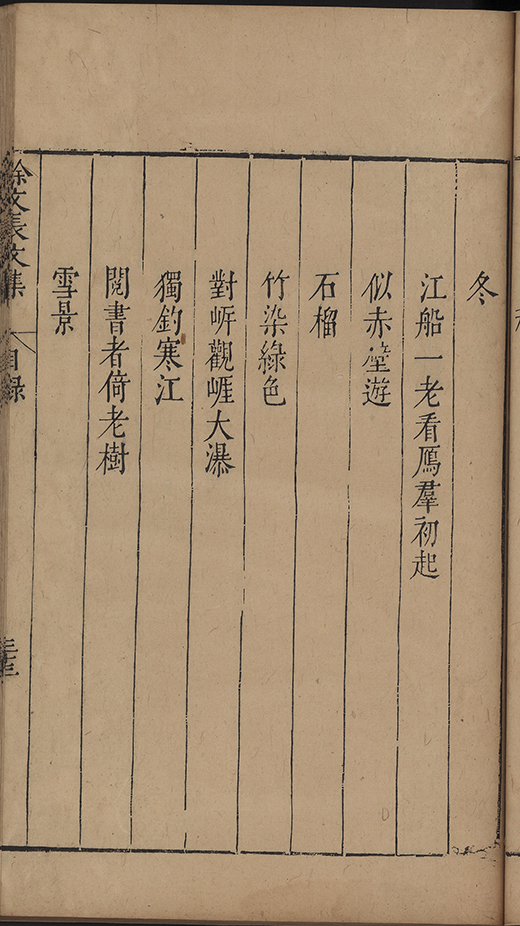 冬
江船一老看鴈羣初起
似赤壁遊
石榴
竹染綠色
對岍觀崕大瀑
獨釣寒江
閱書者倚老樹
雪景
徐文長文集
目錄